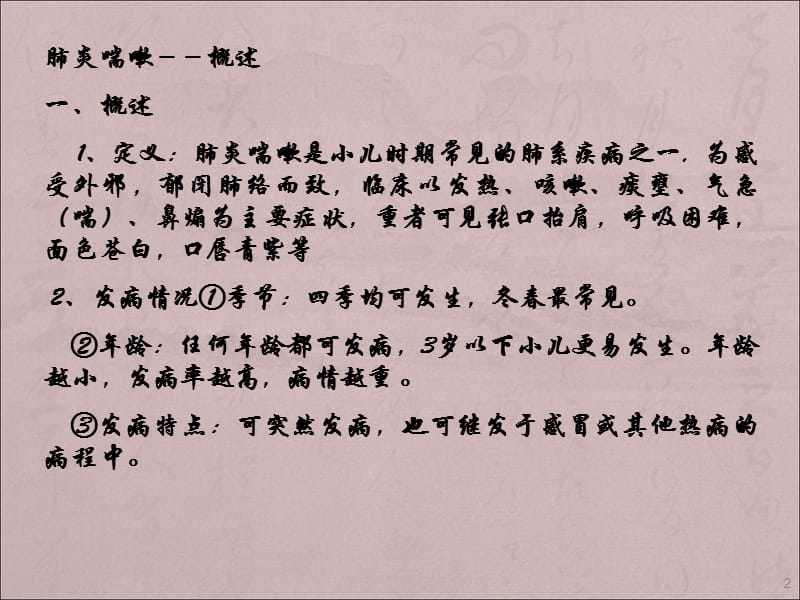 肺炎喘嗽--概述
一、概述
1、定义：肺炎喘嗽是小儿时期常见的肺系疾病之一，为感
受外邪，郁闭肺络而致，临床以发热、咳嗽、痰壅、气急
（喘）、鼻煽为主要症状，重者可见张口抬肩，呼吸困难，
面色苍白，口唇青紫等
2、发病情况①季节：四季均可发生，冬春最常见。
②年龄：任何年龄都可发病，3岁以下小儿更易发生。年龄
越小，发病率越高，病情越重。
③发病特点：可突然发病，也可继发于感冒或其他热病的
病程中。
2